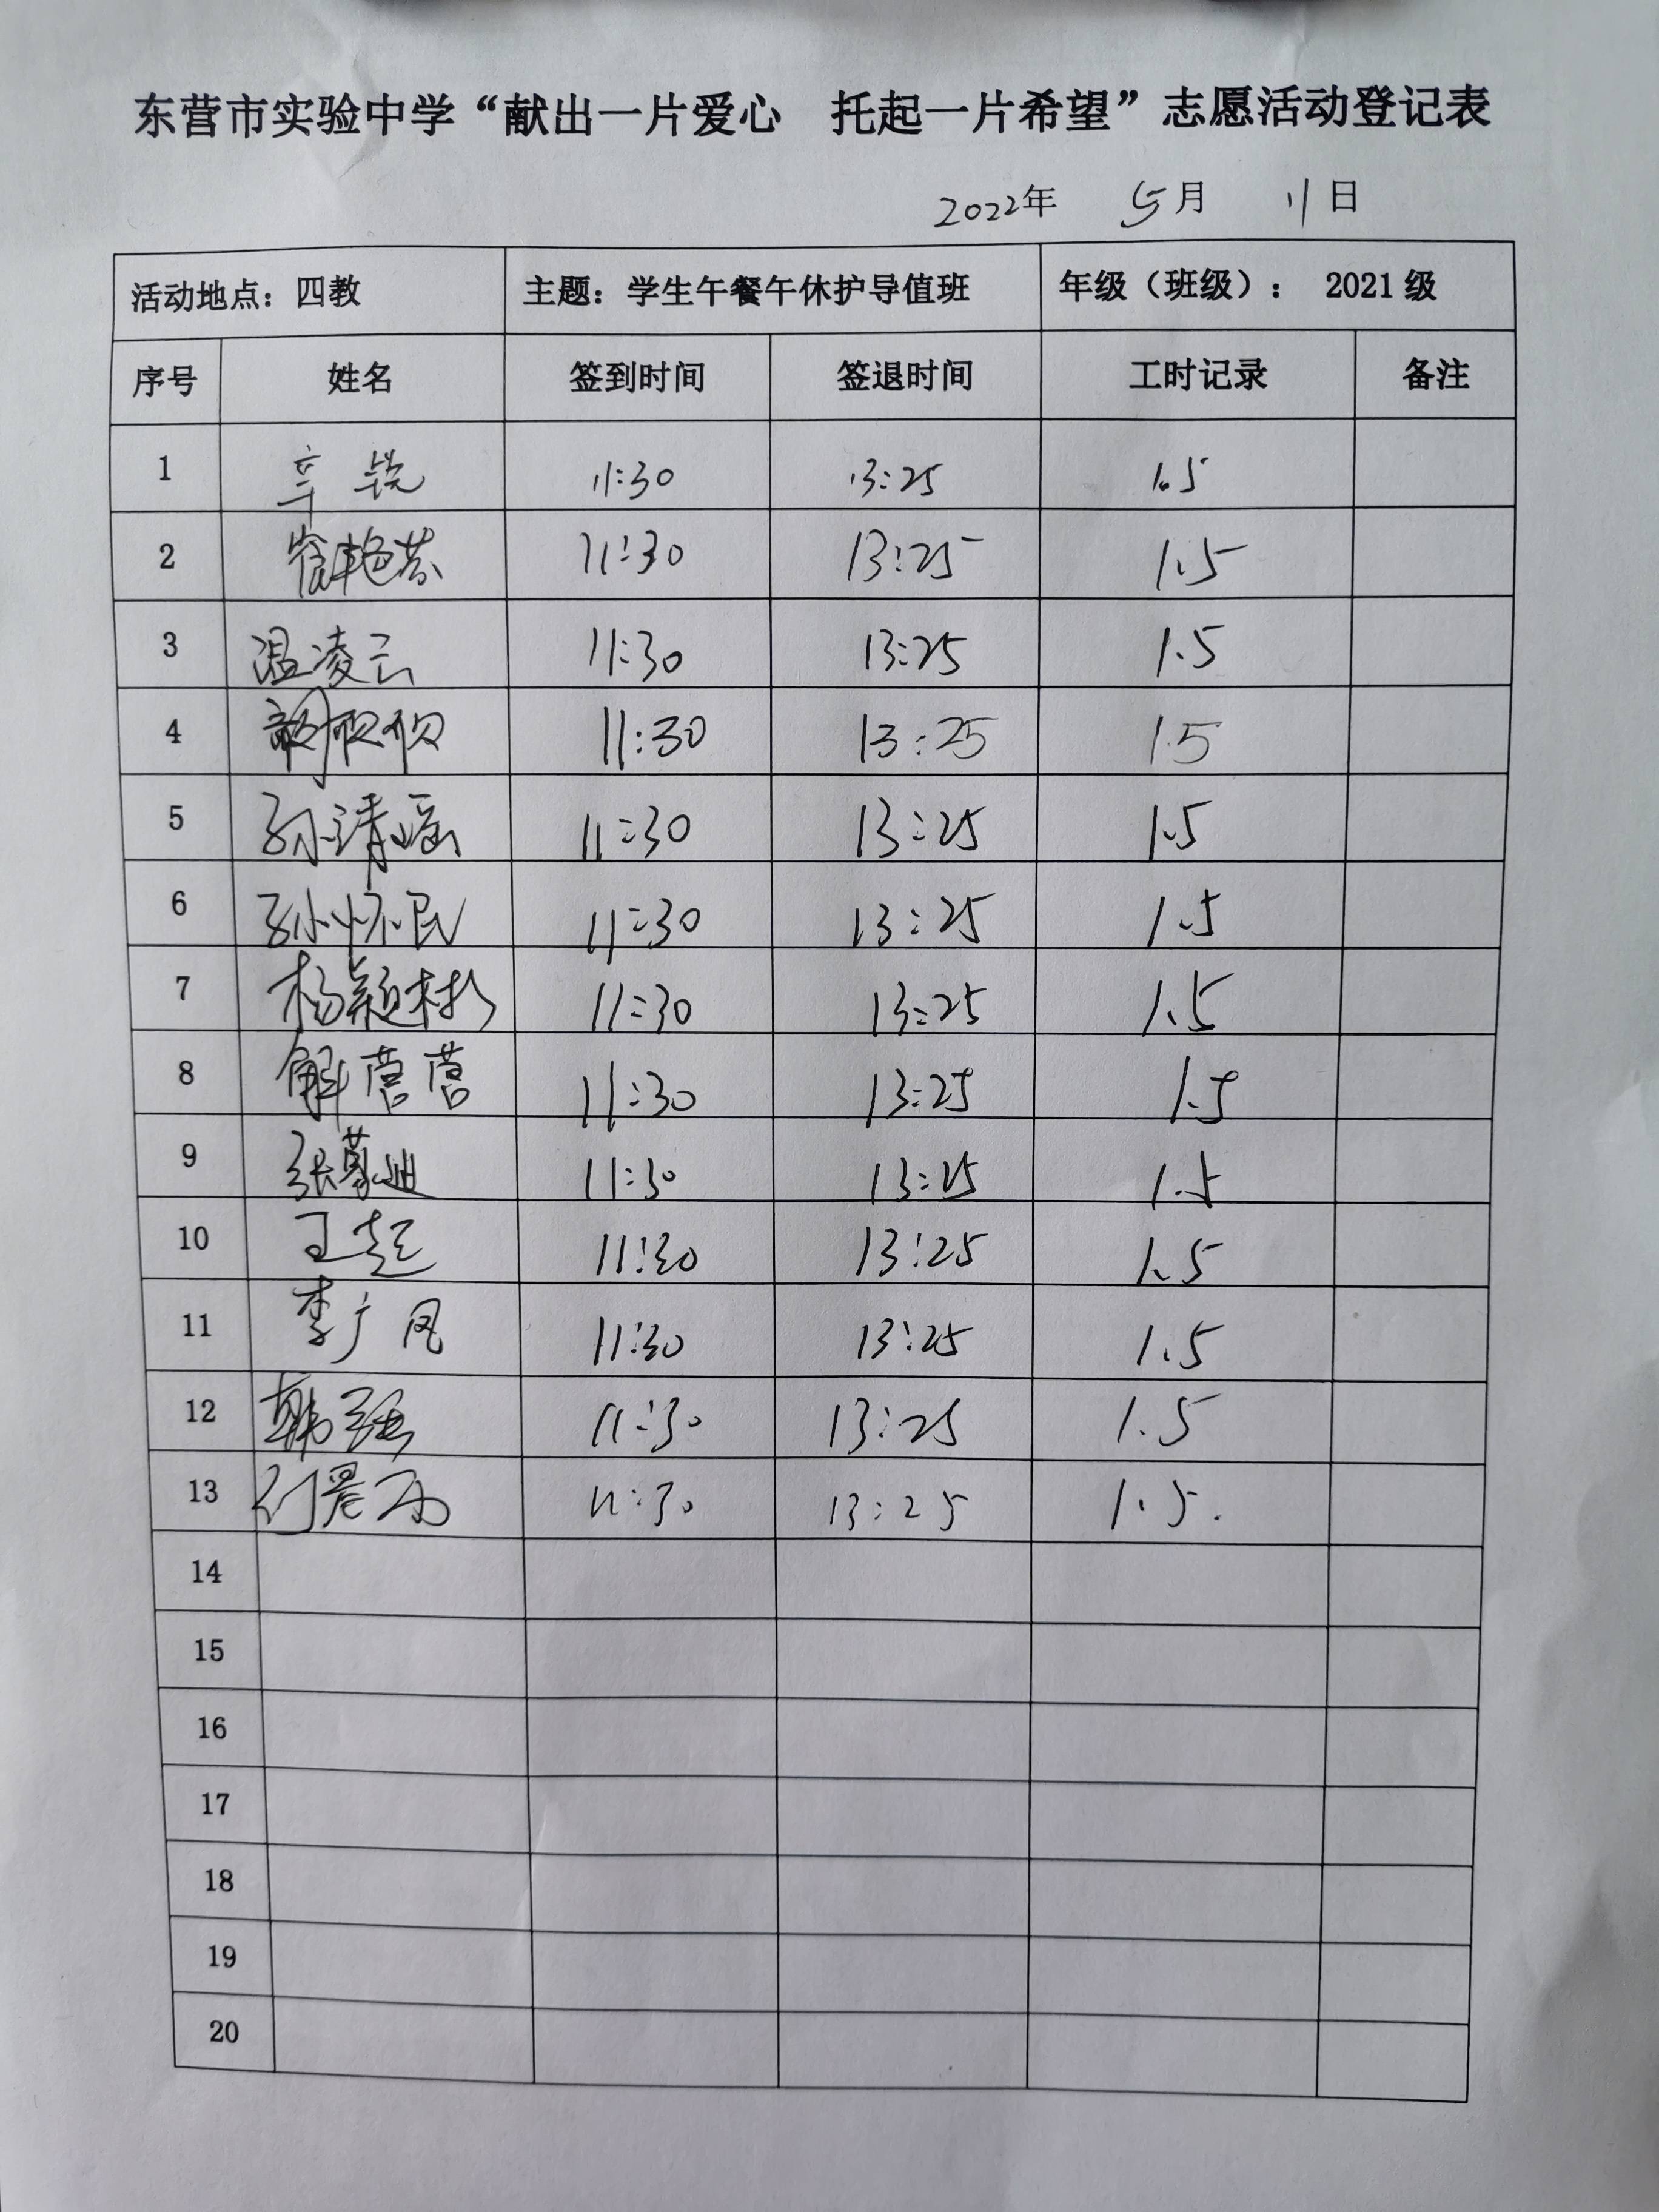 东营市实验中学“献出一片爱心 托起一片希望”志愿活动登记表
2022年 5月 11日
活动地点：四教 主题：学生午餐午休护导值班 年级（班级）： 2021级
序号 姓名 签到时间 签退时间 工时记录 备注
1 辛锐 11:30 13:25 1.5
2 崔艳芬 11:30 13:25 1.5
3 温凌云 11:30 13:25 1.5
4 11:30 13:25 1.5
5 孙清瑶 11:30 13:25 1.5
6 孙怀民 11:30 13:25 1.5
7 杨颖彬 11:30 13:25 1.5
8 解营营 11:30 13:25 1.5
9 张慕迪 11:30 13:25 1.5
10 王超 11:30 13:25 1.5
11 李广凤 11:30 13:25 1.5
12 韩强 11:30 13:25 1.5
13 11:30 13:25 1.5.
14
15
16
17
18
19
20